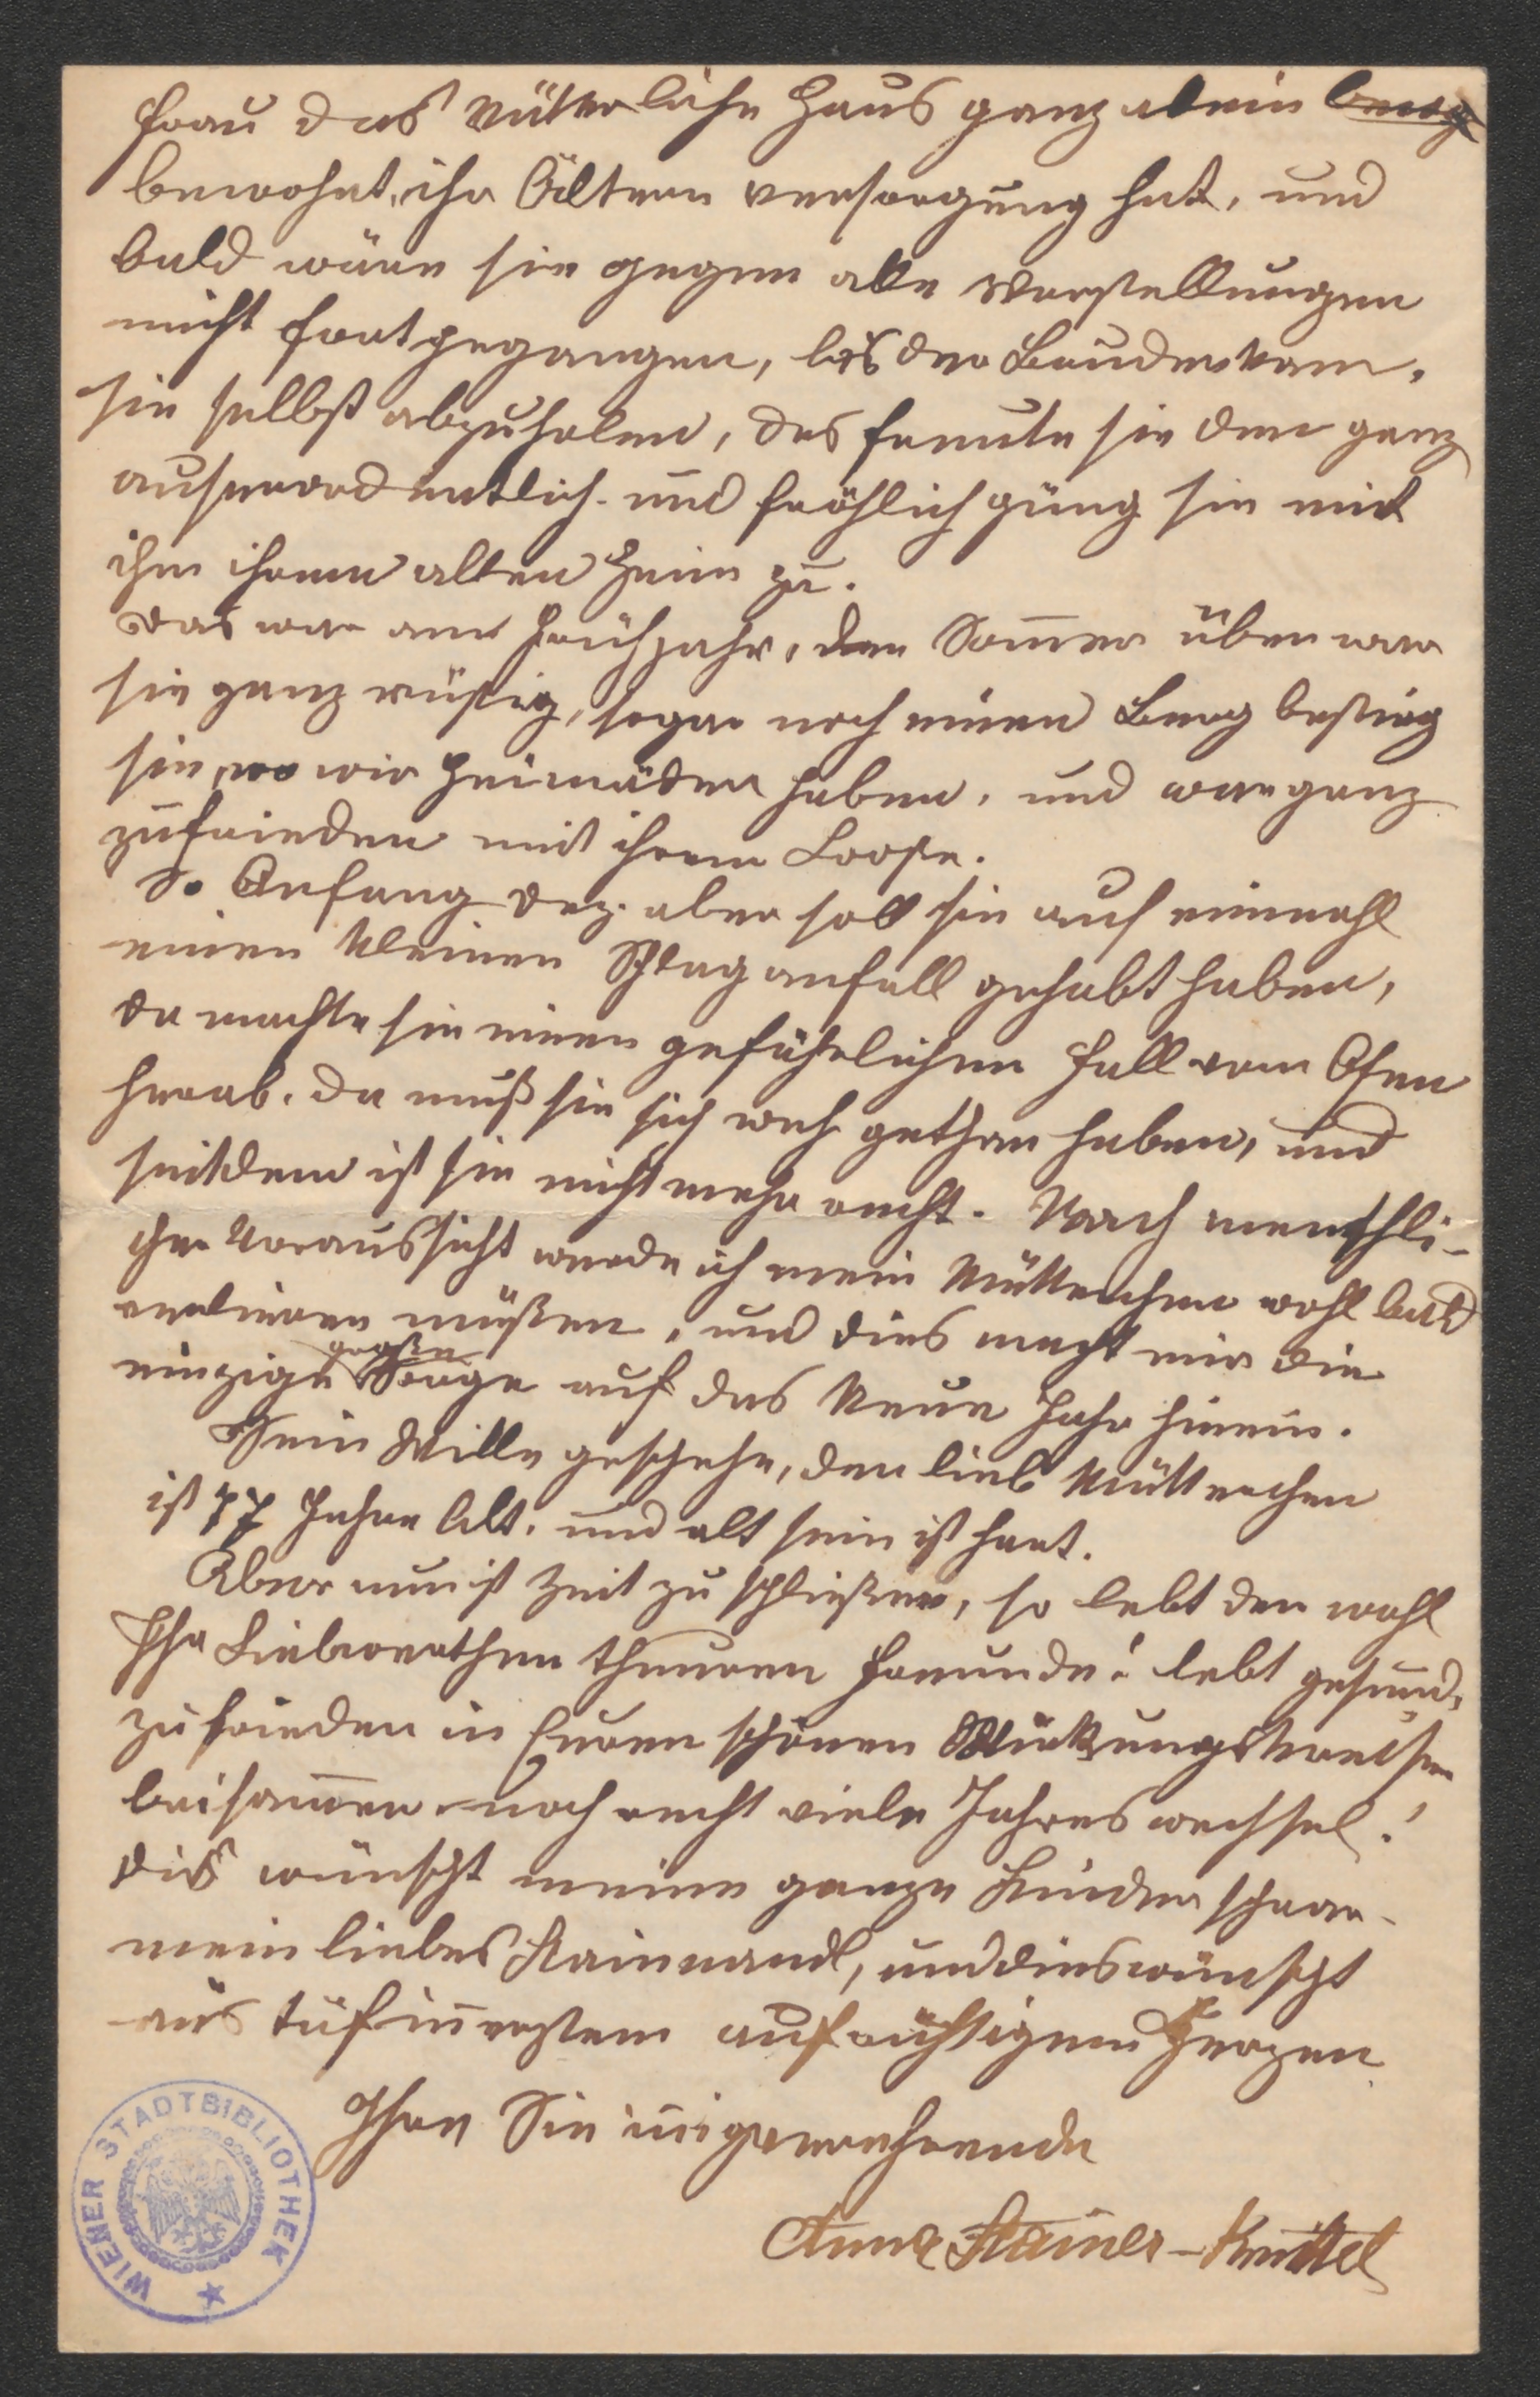 Frau das Mütterliche Haus ganz alein bewog
bewohnt, ihr Ältern versorgung hat, und
bald wäre sie gegen alle Vorstellungen
nicht fortgegangen, bis der Bruder kam,
sie selbst abzuholen, das freute sie den ganz
auserordentlich und fröhlich güng sie mit
ihm ihrem alten Heim zu.
Das war am Frühjahr, den Som̄er über war
sie ganz rüstig, sogar noch einen Berg bestieg
sie, wo wir Heimäder haben, und war ganz
zufrieden mit ihrem Loose.
So Anfang Dez. aber soll sie auf einmahl
einen kleinen Schlaganfall gehabt haben,
da machte sie einen gefährlichen Fall vom Ofen
herab. Da muß sie sich weh gethan haben, und
seitdem ist sie nicht mehr recht. Nach menschli-
cher Voraussicht werde ich mein Mütterchen wohl bald
verlieren müßen, und dies macht mir die
einzige große Sorge auf das Neue Jahr hinein.
Sein Wille geschehe, den lieb Mütterchen
ist 77 Jahre Alt. und alt sein ist hart.
Aber nun ist Zeit zu schließen, so lebt den wohl
Ihr Liebwerthen theuren Freunde! lebt gesund,
zufrieden in Euren schönen Wirkungskreisen
beisam̄en noch recht viele Jahreswechsel!
dies wünscht meine ganze Kinderschaar
mein liebes Stainmandl, und dies wünscht
aus tüfin̄erstem aufrichtigem Herzen
Ihre Sie in̄igverehrende
Anna Stainer-Knittel
WIENER STADTBIBLIOTHEK